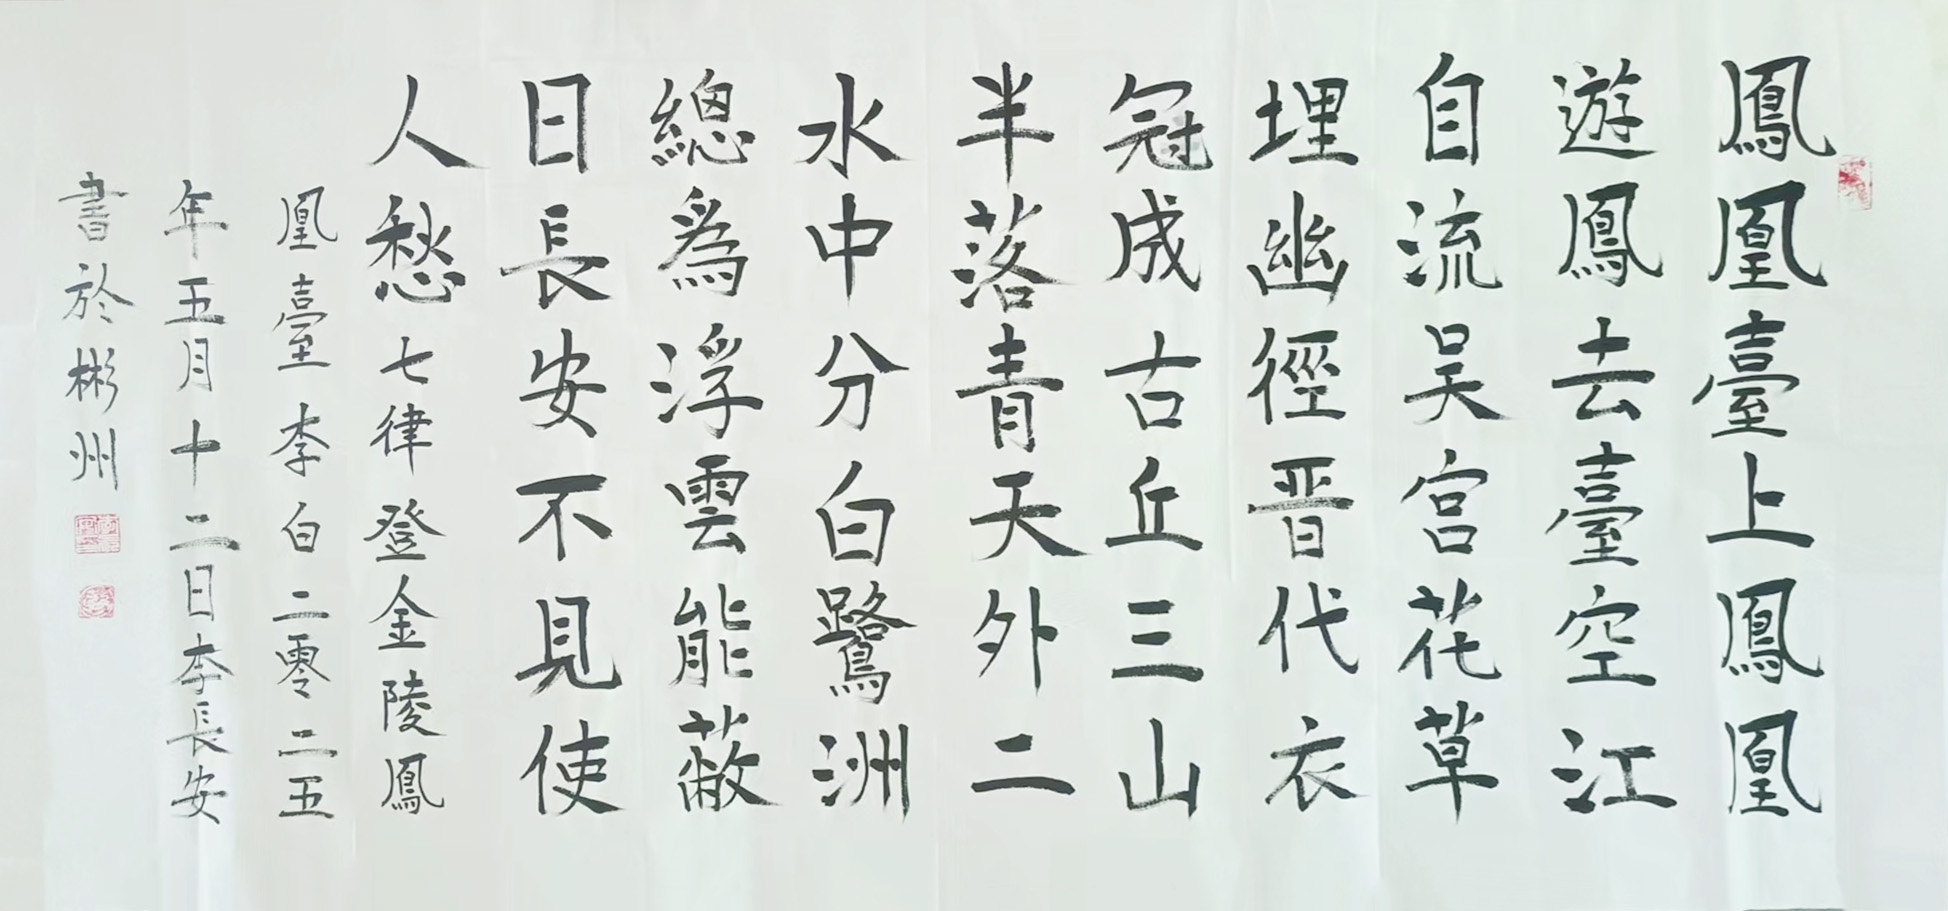 鳳凰臺上鳳凰
遊鳳去臺空江
自流吴宫花草
埋幽徑晋代衣
冠成古丘三山
半落青天外二
水中分白鷺洲
總爲浮雲能蔽
日長安不見使
人愁七律登金陵鳳
凰臺李白二零二五
年五月十二日李長安
書於彬州